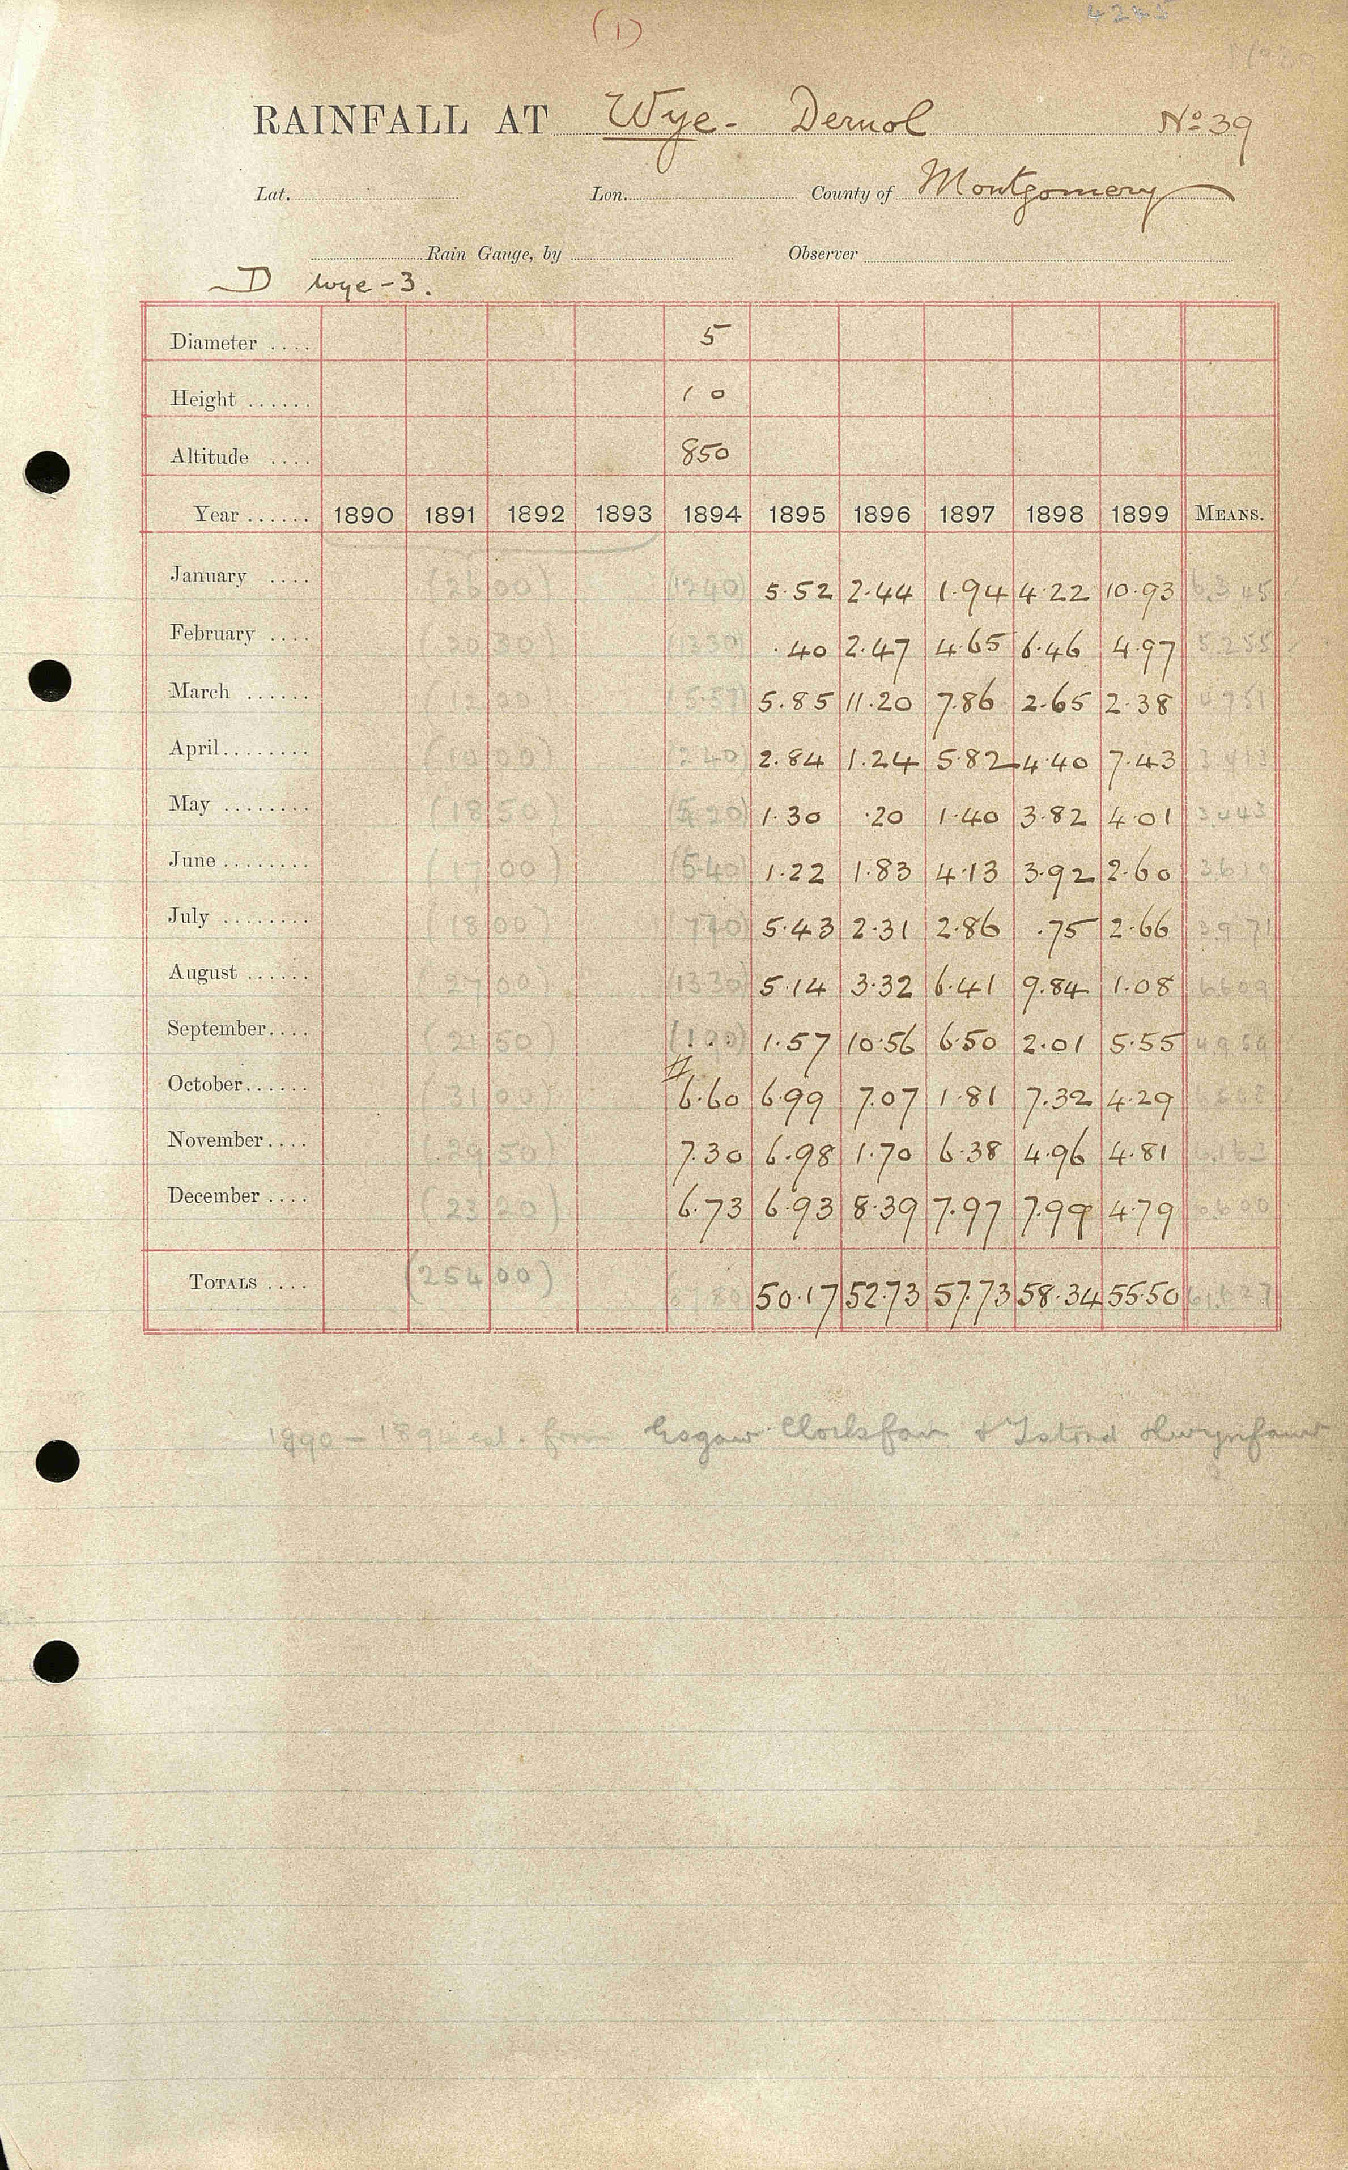 (1)
RAINFALL AT Wye- Dernol No 39
Lat. Lon. County of Montgomery
Rain Gauge, by Observer
D Wye-3.
Diameter .... 5
Height ...... 10
Altitude .... 850
Year ...... 1890 1891 1892 1893 1894 1895 1896 1897 1898 1899 MEANS.
January .... (26 00) (1240) 5.52 2.44 1.94 4.22 10.93
February .... (20 30) (1330) .40 2.47 4.65 6.46 4.97 5.255
March ...... 5.85 11.20 7.86 2.65 2.38
April........ (10 00) (240) 2.84 1.24 5.82 4.40 7.43
May ........ (18 50) 1.30 .20 1.40 3.82 4.01
June ........ (17 00) (5.40) 1.22 1.83 4.13 3.92 2.60
July ........ (18 00) 5.43 2.31 2.86 .75 2.66 3.971
August ...... (27 00) (13 30) 5.14 3.32 6.41 9.84 1.08
September.... (21 50) 1.57 10.56 6.50 2.01 5.55
October...... (31 00) # 6.60 6.99 7.07 1.81 7.32 4.29
November.... (29 50) 7.30 6.98 1.70 6.38 4.96 4.81
December .... (23 20) 6.73 6.93 8.39 7.97 7.99 4.79
TOTALS .... (254.00) 50.17 52.73 57.73 58.34 55.50
est. from